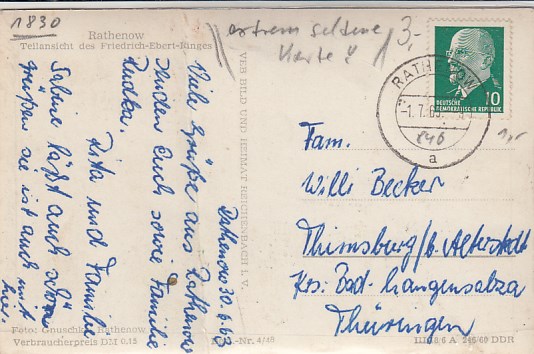 1830
Rathenow
Teilansicht des Friedrich-Ebert-Ringes
extrem seltene
Karte !
3,-
RATHENOW
-1.7.63
a
10
DEUTSCHE
DEMOKRATISCHE REPUBLIK
1,-
Rathenow 30.6.63
Viele Grüße aus Rathenow
senden Euch sowie Familie
Rita und Familie
Sabine läßt auch schön
grüßen sie ist auch mit
hier.
VEB BILD UND HEIMAT REICHENBACH I. V.
Fam.
Willi Becker
Thamsburg/b. Alterstedt
Krs. Bad-Langensalza
Thüringen
Foto: Gnuschke, Rathenow
Verbraucherpreis DM 0.15
-Nr. 4/48
A 246/60 DDR